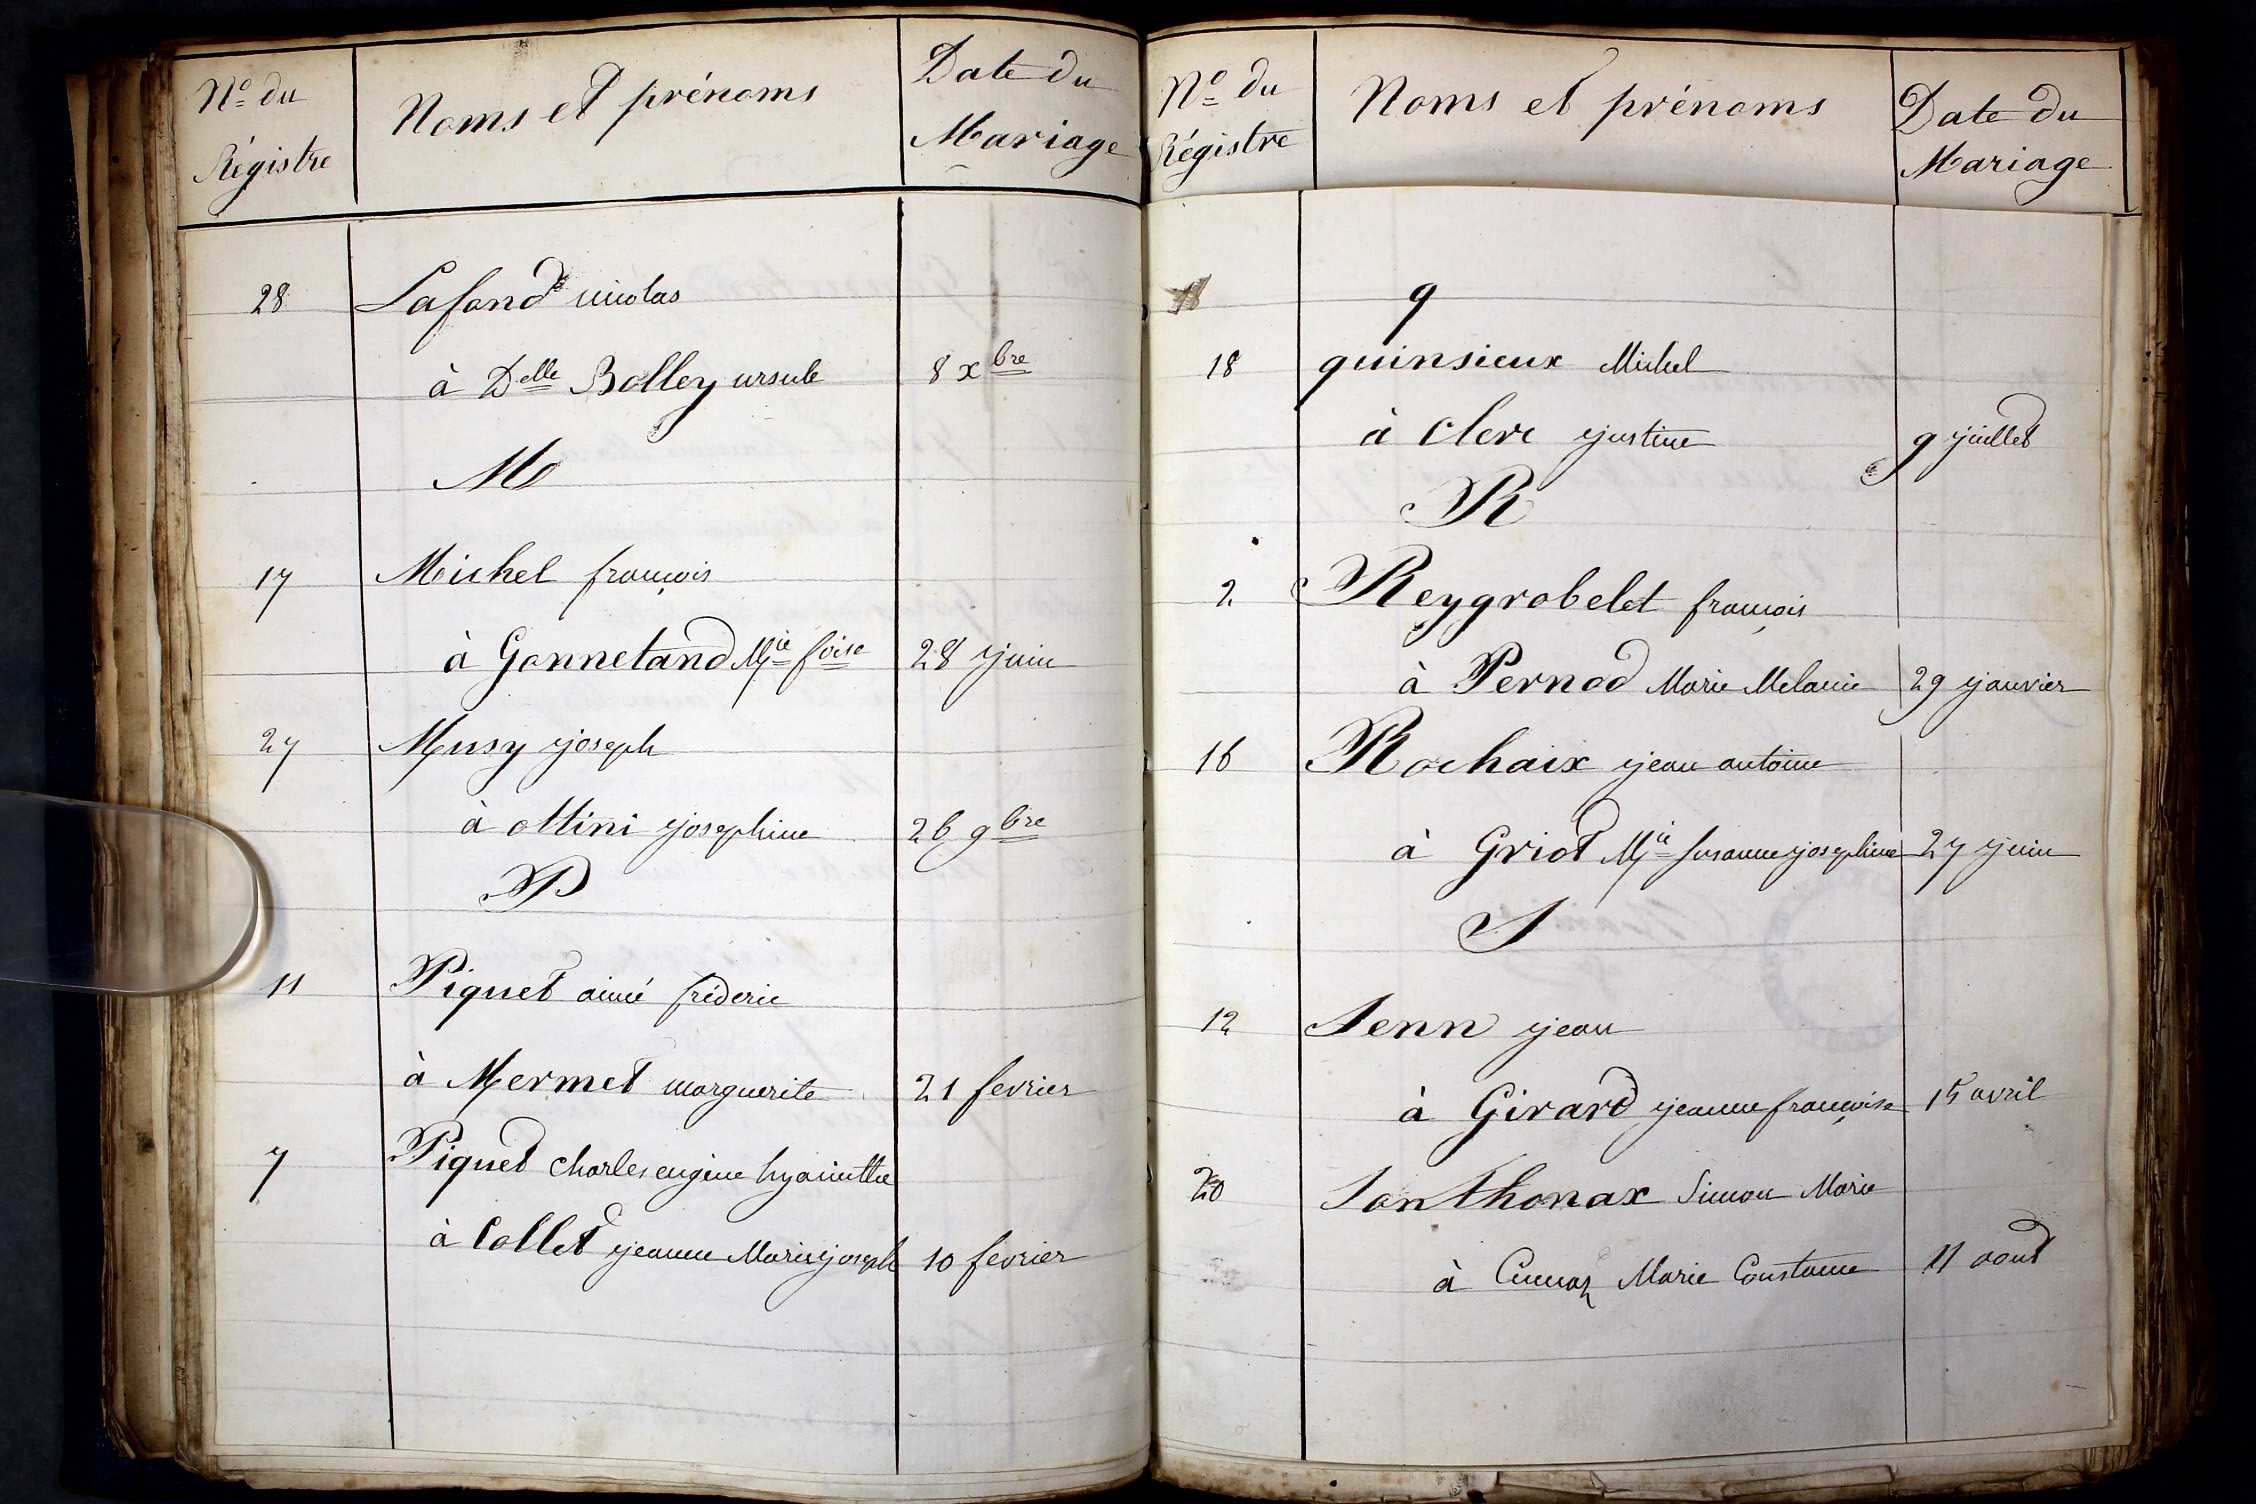 No du
Régistre
Noms et prénoms
Date du
Mariage
28 Lafond nicolas
à Delle Bolley ursule 8 xbre
M
17 Michel françois
à Gonnetand Mie foise 28 juin
27 Musy joseph
à ottini josephine 26 9bre
P
11 Piquet aimé fréderic
à Mermet marguerite 21 fevrier
7 Piquet charles eugène hyacinthe
à Collet jeanne Marie joseph 10 fevrier
No du
Régistre
Noms et prénoms
Date du
Mariage
q
18 quinsieux Michel
à clerc justine 9 juillet
R
2 Reygrobelet françois
à Pernod Marie Melanie 29 janvier
16 Rochaix jean antoine
à Griot Mie Susanne josephine 27 juin
S
12 Senn jean
à Girard jeanne françoise 15 avril
20 Santhonax Simon Marie
à Marie Constance 11 aout